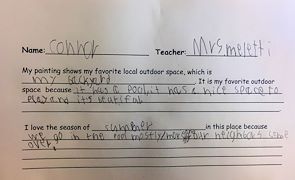 Name: connor Teacher: Mrs meletti
My painting shows my favorite local outdoor space, which is
my backyard. It is my favorite outdoor
space because it has a pool, it has a nice space to
play and it's
I love the season of summer in this place because
we go in the pool mostly/more our neighbors come
over.